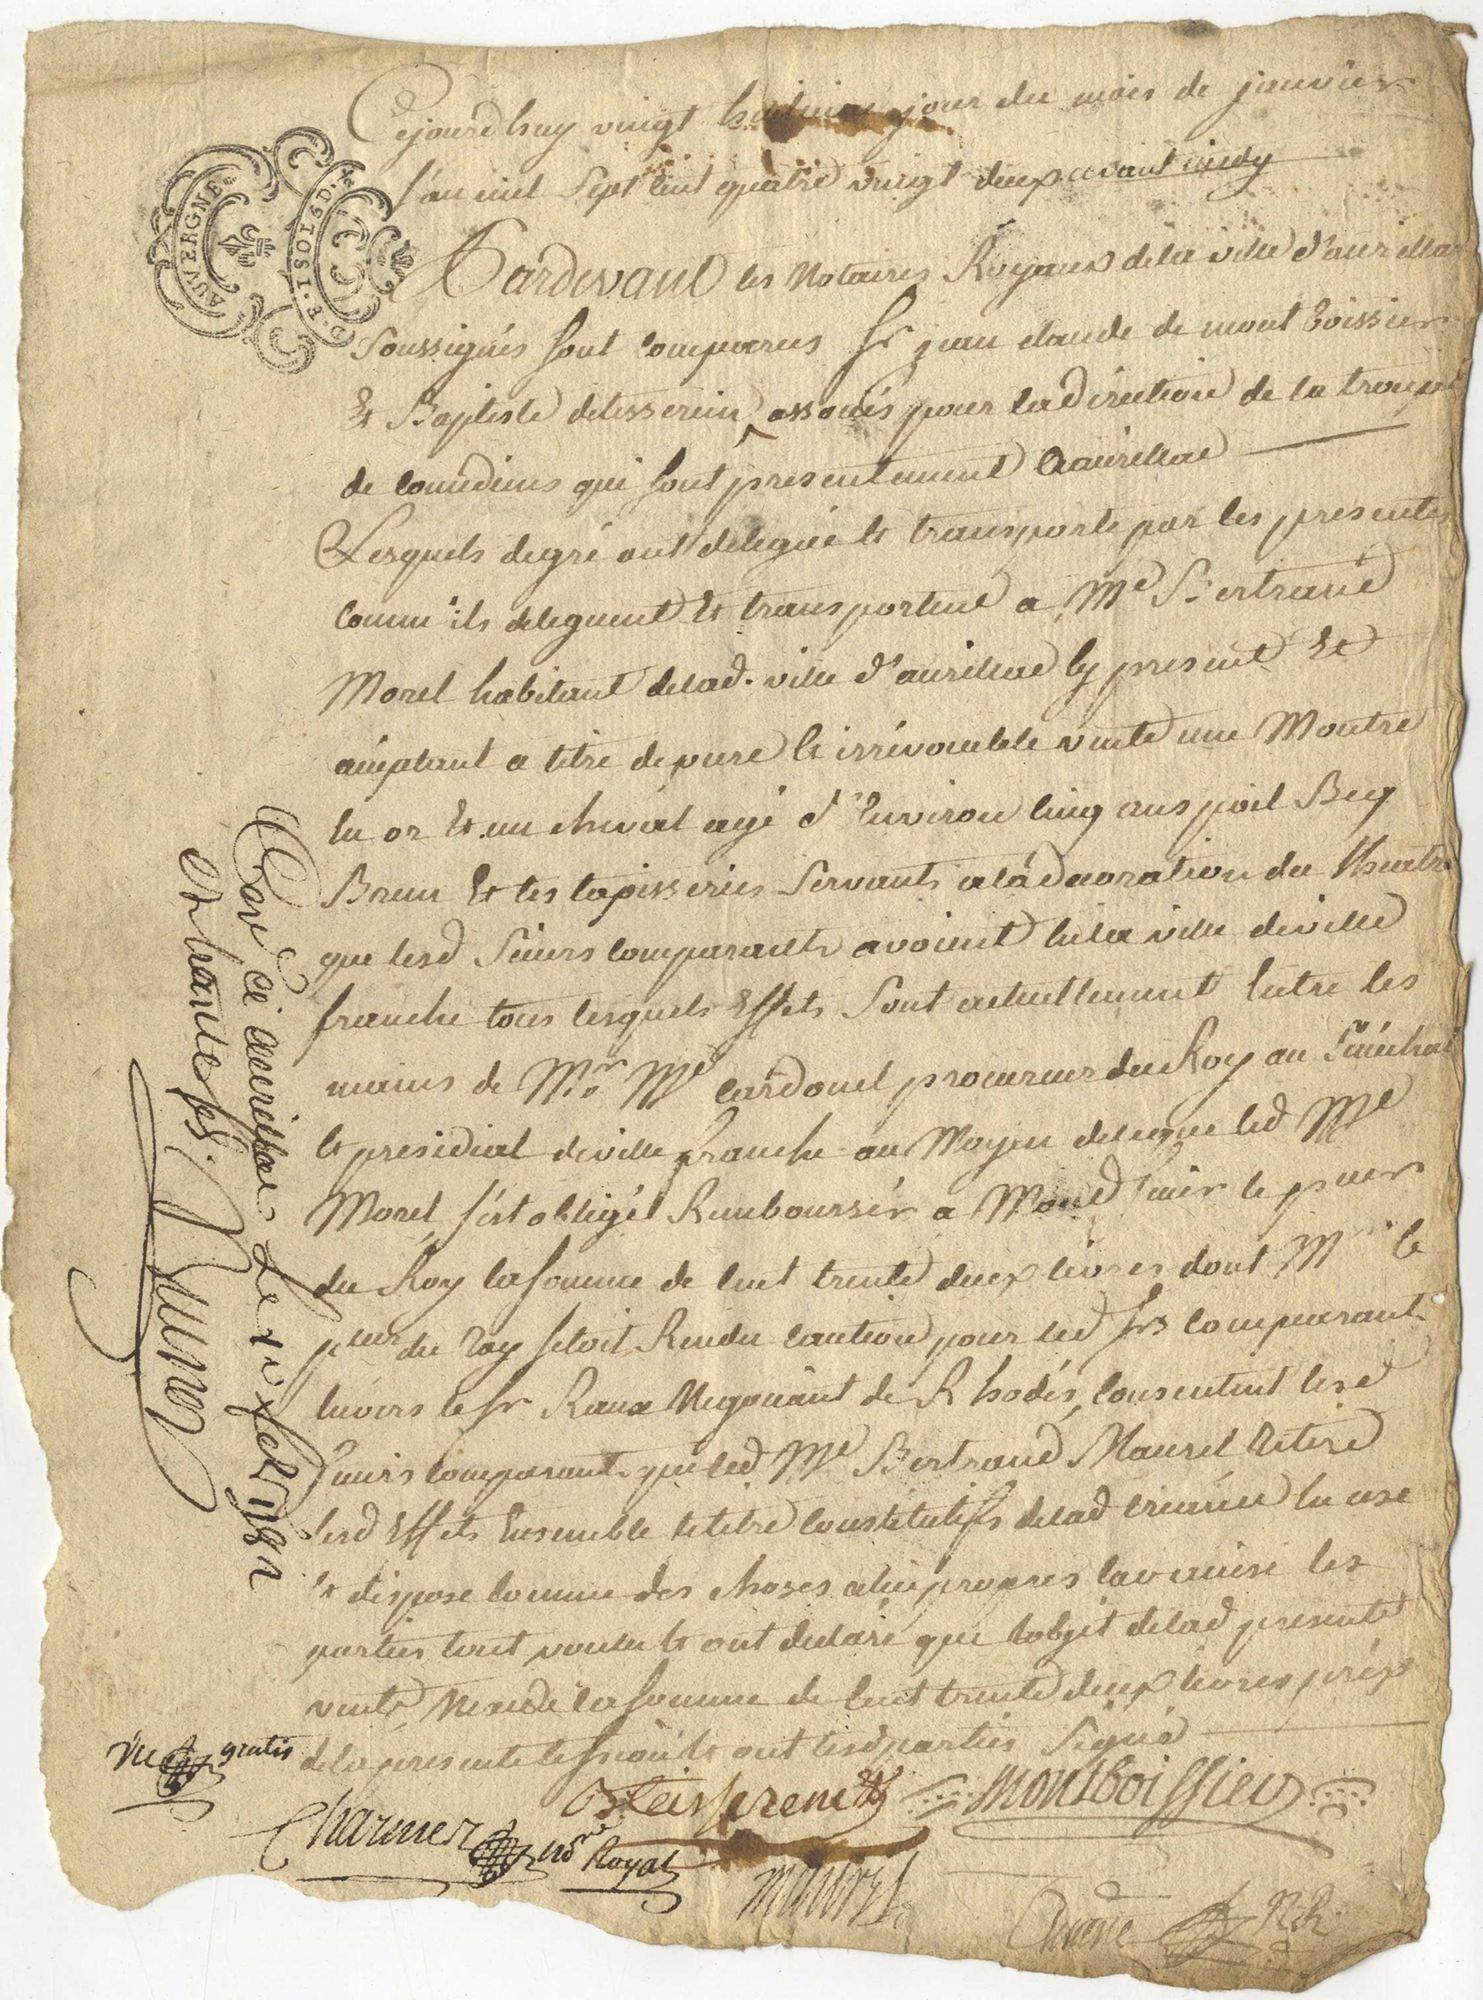 Cejourdhuy vingt huitieme jour du mois de janvier
l'an mil Sept Cent quatre vingt deux avant midy
AUVERGNE
D. E. 1 SOL 6 D.
Pardevant les Notaires Royaux de la ville d'aurillac
Soussignés sont comparus Sr jean claude de montboissier
Et Baptiste deteisserein, associés pour la direction de la troupe
de Comediens qui sont presentement a aurillac
Lesquels de gré ont delegué et transporté par les presentes
Comm'ils deleguent et transportent a Me Bertrand
Morel habitant de lad. ville d'aurillac Cy present Et
acceptant a titre de pure et irrévocable vente une Montre
En or et un cheval agé d'Environ Cinq ans poil Bey
Brun Et les tapisseries Servants a la décoration du Theatre
que lesd Sieurs Comparants avoient En la ville de ville
franche tous lesquels Effets Sont actuellement Entre les
mains de Mr. Me Cardonel procureur du Roy au Sénéchal
et presidial de ville franche au Moyen de ce que led Me
Morel s'est obligé Rembourser a Mond Sieur le pcur
du Roy la somme de Cent trente deux livres dont Mr le
pcur du roy setoit Rendu Caution pour lesd Srs Comparants
Envers le Sr Raux Negociant de Rhodés, Consentent lesd
Sieurs Comparants que led Me Bertrand Maurel retire
lesd Effets Ensemble le titre Constitutifs de lad Créance En use
Et dispose Comme des choses a lui propres
parties tout voulu et ont declaré que lobjet de lad presente
vente Nexede la Somme de Cent trente deux livres prix
de la presente Cession et ont lesd parties Signé
Con. ce a aurillac le 1er febr 1782
et trante sols
vu gratis
Deteisserenc
Montboissier
Charmes
nore Royal
maurel
N.R.